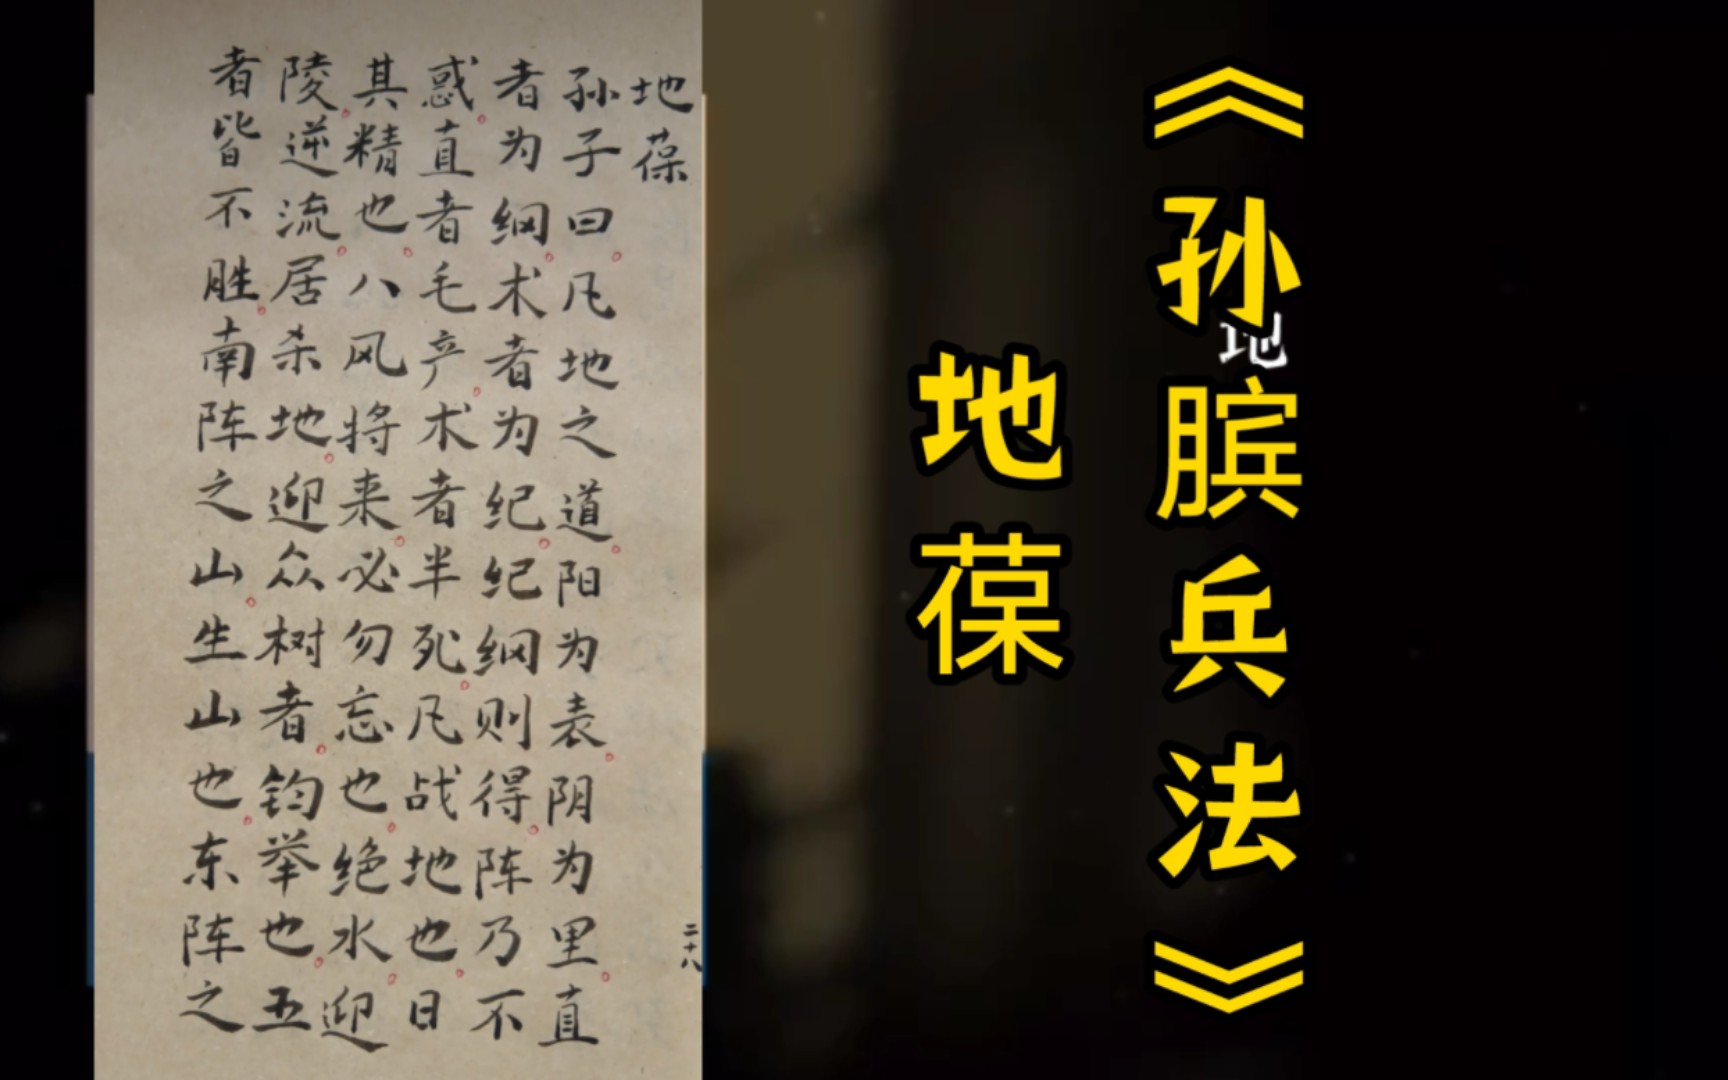 《孙膑兵法》
地
地葆
地葆
孙子曰。凡地之道。阳为表。阴为里。直
者为纲。术者为纪。纪纲则得。阵乃不
惑。直者毛产。术者半死。凡战地也。日
其精也。八风将来。必勿忘也。绝水。迎
陵。逆流。居杀地。迎众树者。钧举也。五
者皆不胜。南阵之山。生山也。东阵之
二十八